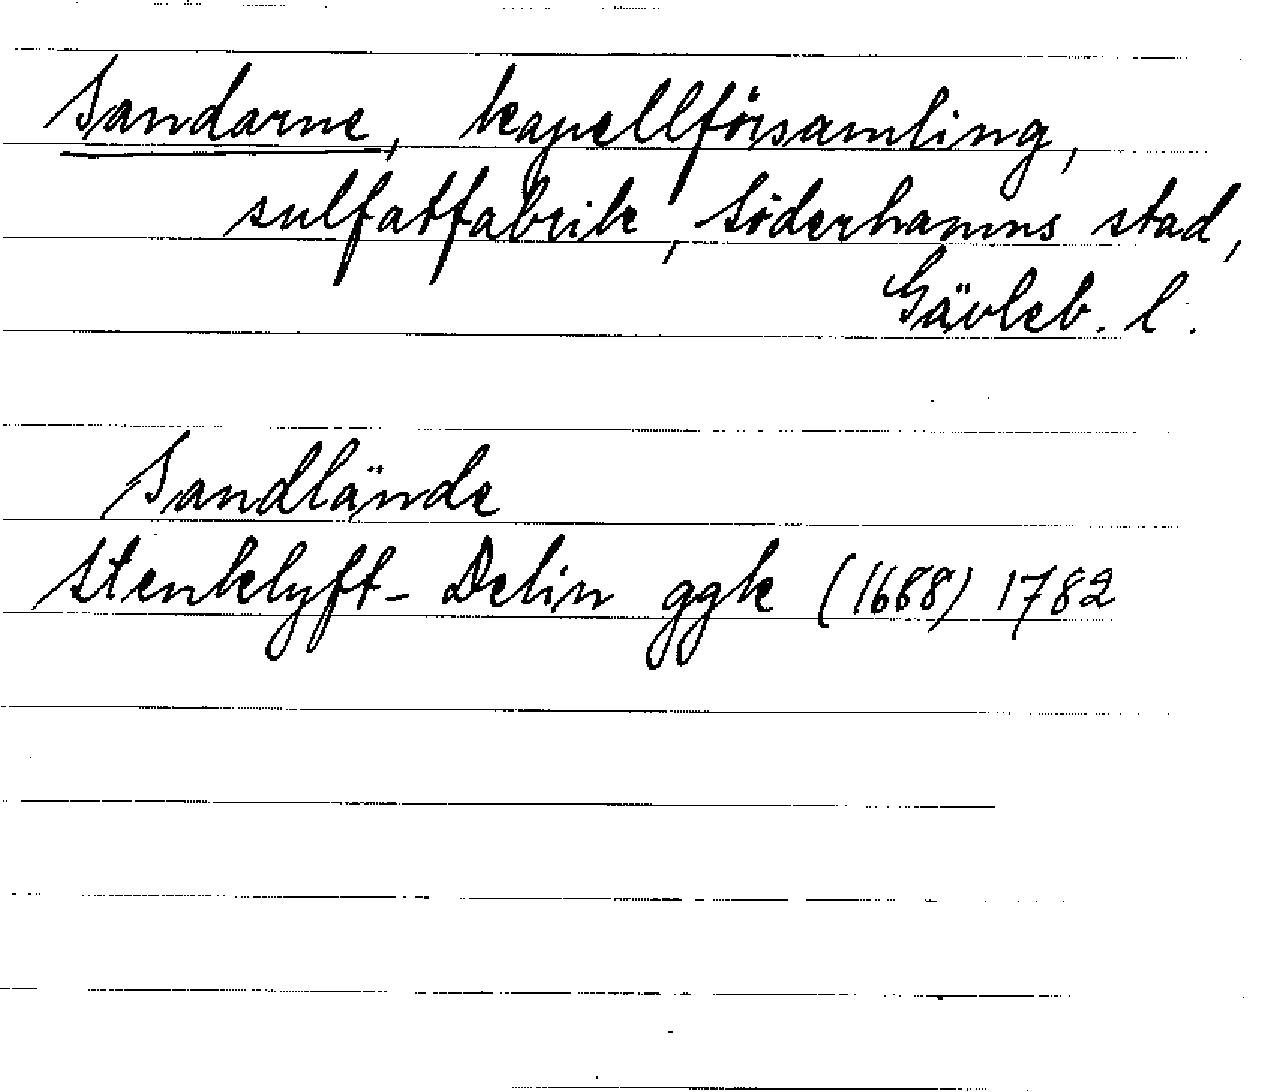 Sandarne, kapellförsamling,
sulfatfabrik, Söderhamns stad,
Gävleb. l.
Sandlände
Stenklyft- Delin ggk (1688) 1782